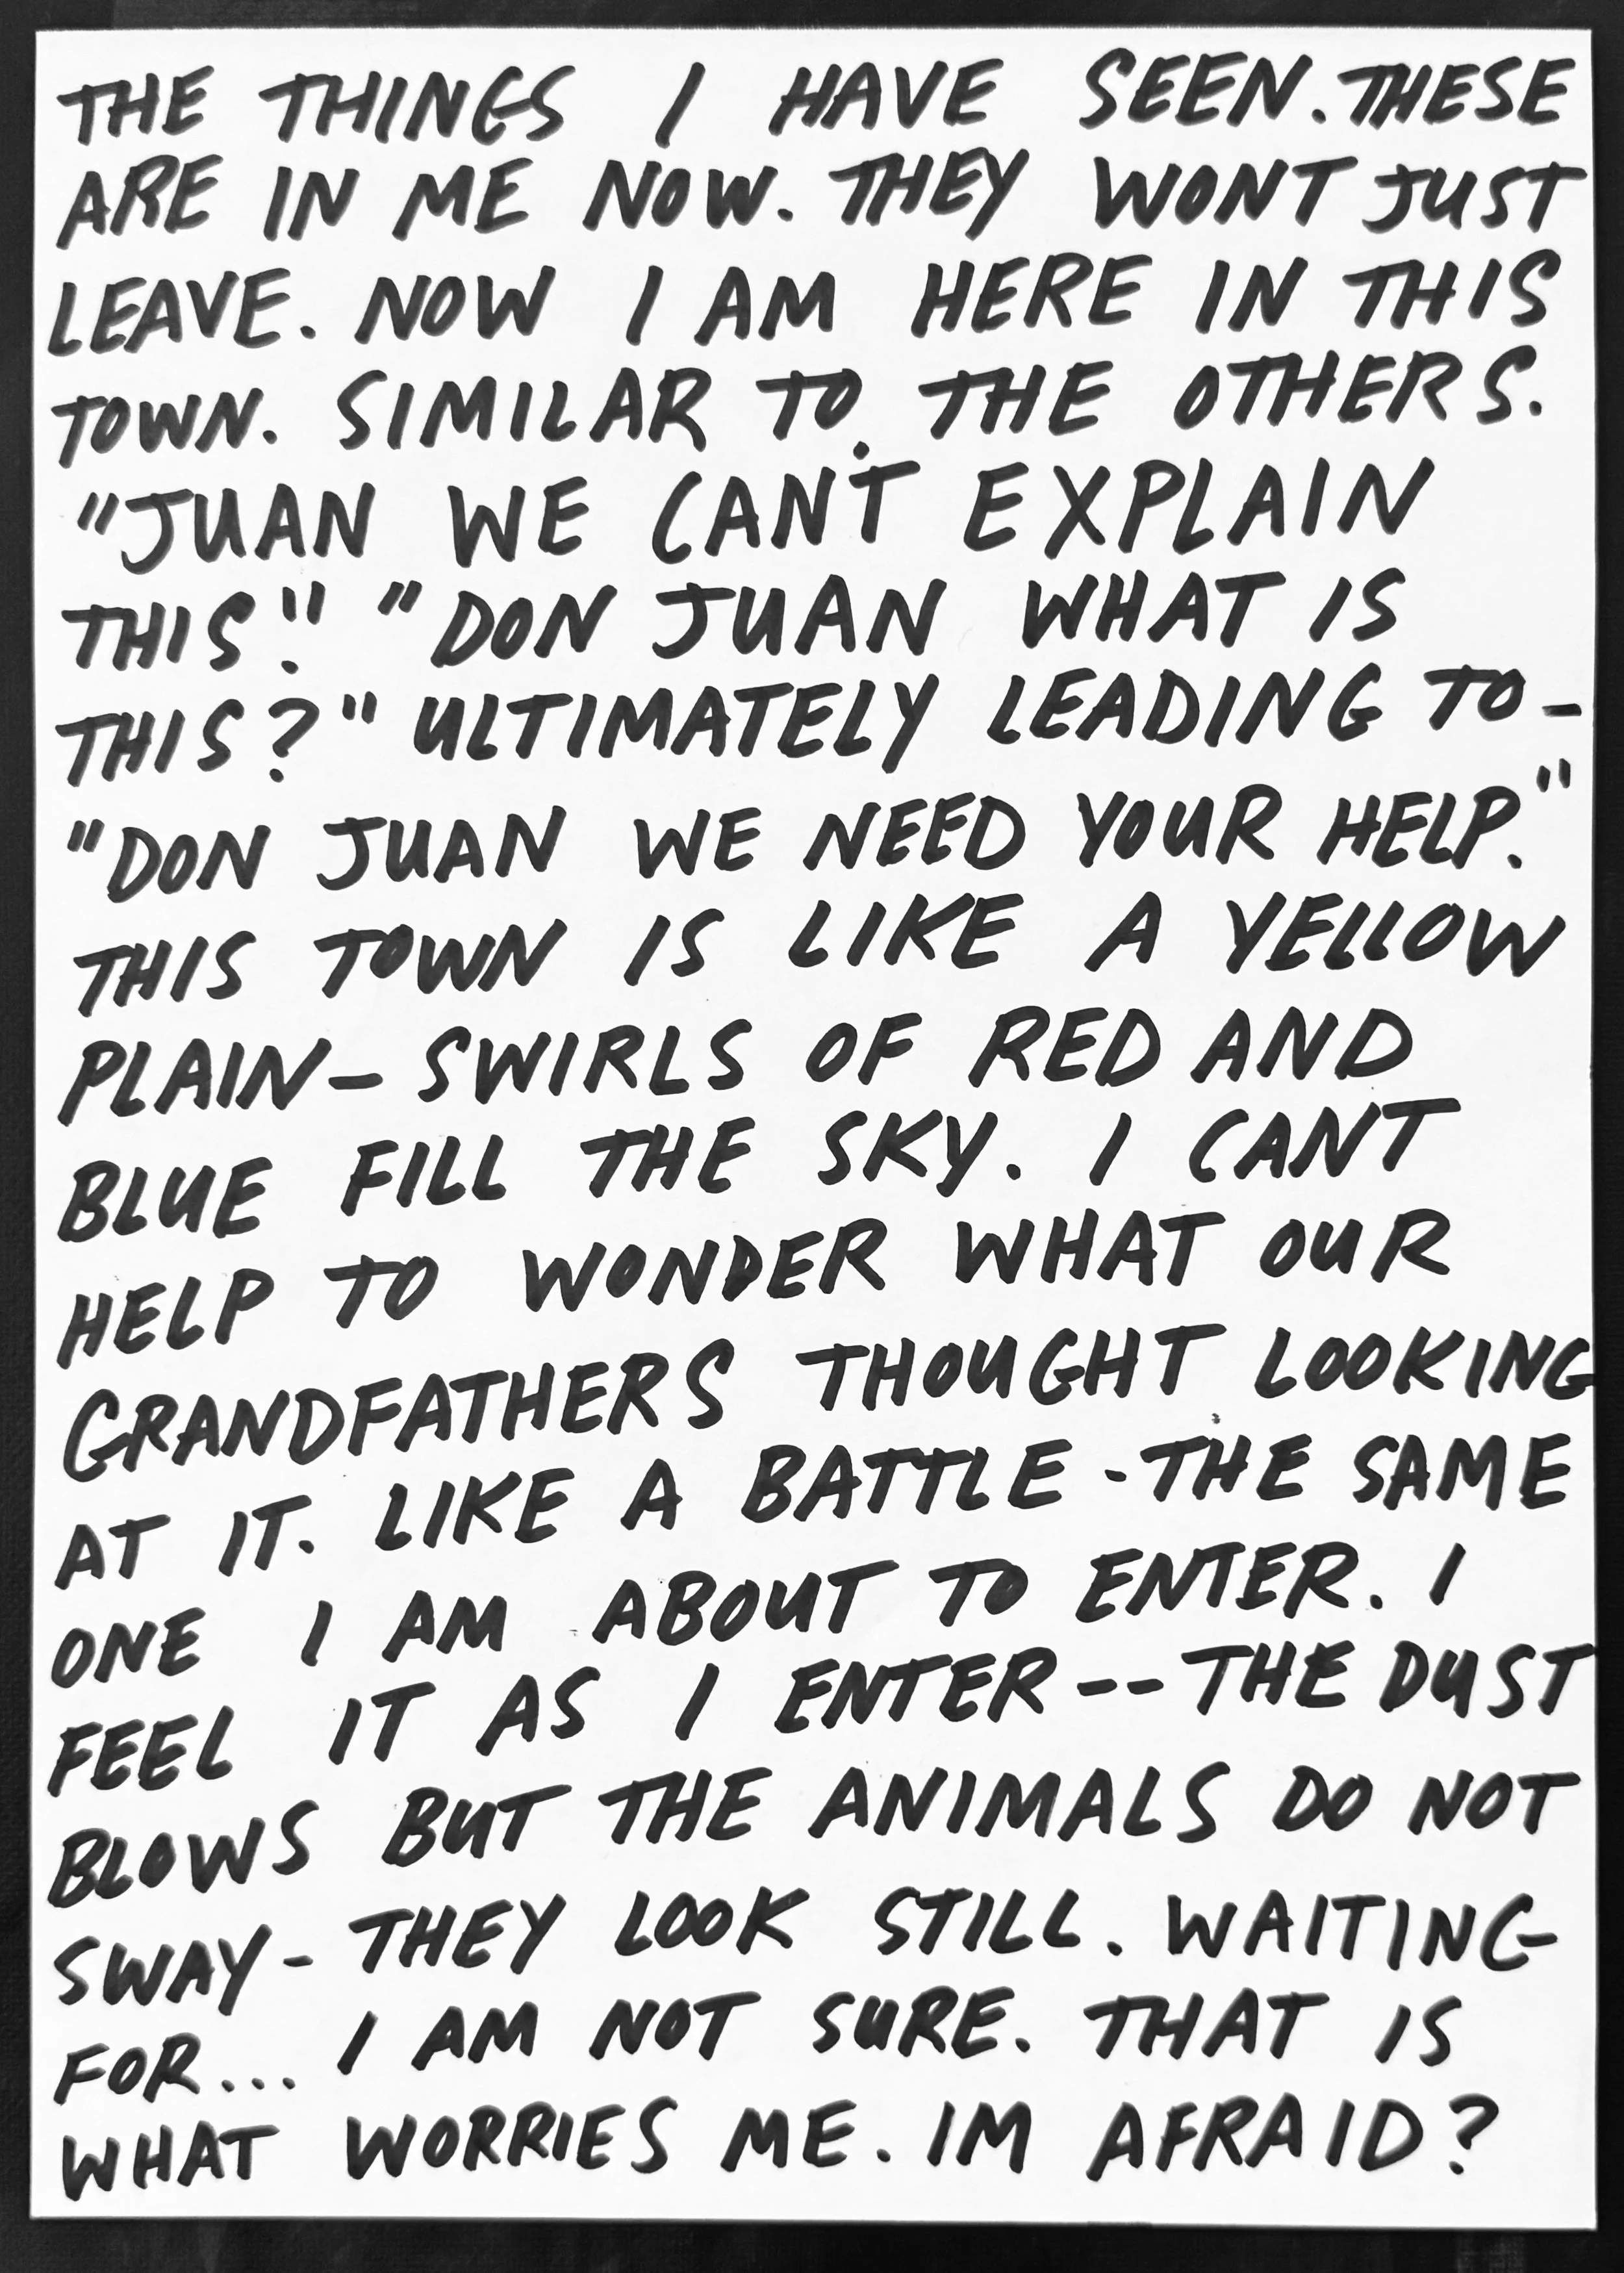 THE THINGS I HAVE SEEN. THESE
ARE IN ME NOW. THEY WONT JUST
LEAVE. NOW I AM HERE IN THIS
TOWN. SIMILAR TO THE OTHERS.
"JUAN WE CAN'T EXPLAIN
THIS." "DON JUAN WHAT IS
THIS?" ULTIMATELY LEADING TO-
"DON JUAN WE NEED YOUR HELP."
THIS TOWN IS LIKE A YELLOW
PLAIN- SWIRLS OF RED AND
BLUE FILL THE SKY. I CANT
HELP TO WONDER WHAT OUR
GRANDFATHERS THOUGHT LOOKING
AT IT. LIKE A BATTLE - THE SAME
ONE I AM ABOUT TO ENTER. I
FEEL IT AS I ENTER -- THE DUST
BLOWS BUT THE ANIMALS DO NOT
SWAY - THEY LOOK STILL. WAITING
FOR... I AM NOT SURE. THAT IS
WHAT WORRIES ME. IM AFRAID?